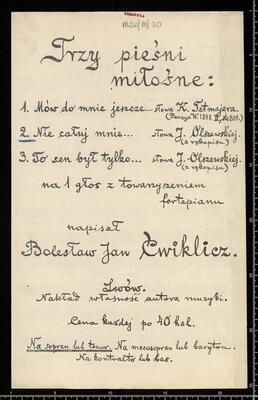 Trzy pieśni
miłosne:
1. Mów do mnie jeszcze... słowa K. Tetmajera.
2. Nie całuj mnie... słowa J. Olszewskiej.
(z rękopisu)
3. To sen był tylko... słowa J. Olszewskiej.
(z rękopisu)
na 1 głos z towarzyszeniem
fortepianu
napisał
Bolesław Jan Ćwiklicz.
Lwów.
Nakład własność autora muzyki.
Cena każdej po 40 hal.
Na sopran lub tenor. Na mecosopran lub baryton.
Na kontralto lub bas.